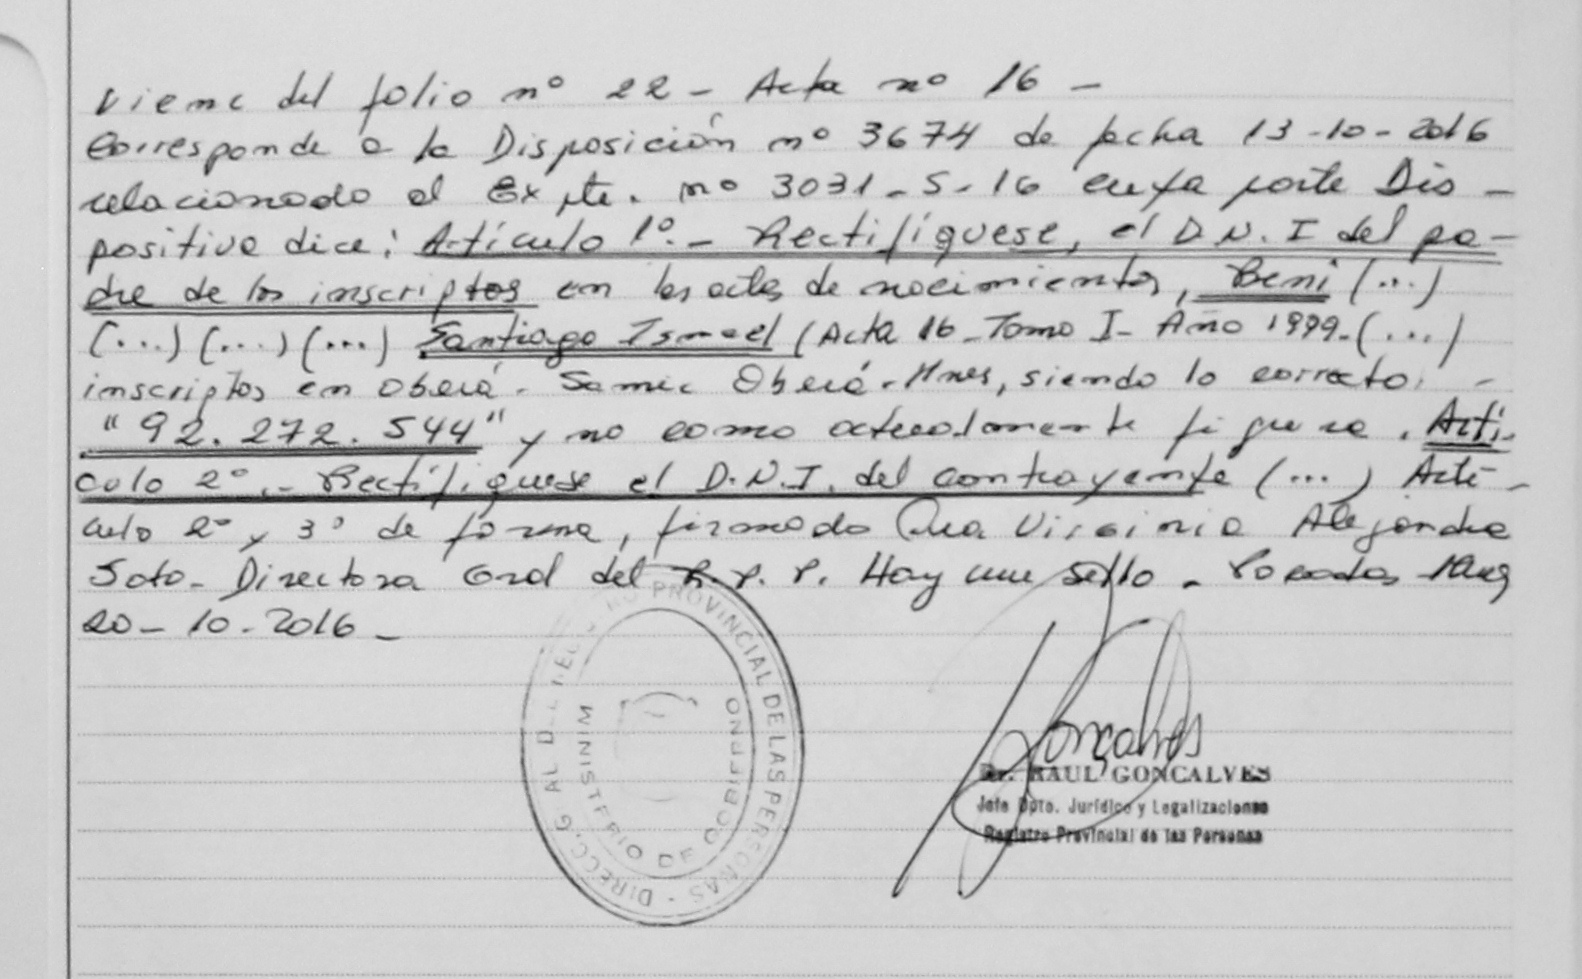 Viene del folio nº 22 - Acta nº 16 -
Corresponde a la Disposición nº 3674 de fecha 13-10-2016
relacionado al Expte. nº 3031-S-16 cuya parte Dis-
positiva dice: Artículo 1º.- Rectifíquese, el D.N.I del pa-
dre de los inscriptos en las actas de nacimientos, Beni (...)
(...) (...) (...) Santiago Ismael (Acta 16-Tomo I- Año 1999-(...)
inscriptos en Oberá. Samic Oberá-Mnes, siendo lo correcto: -
"92.272.544" y no como actualmente figura. Artí-
culo 2º.- Rectifíquese el D.N.I. del contrayente (...) Artí-
culo 2º y 3º de forma, firmado Dra Virginia Alejandra
Soto- Directora Gral del R.P.P. Hay un Sello. Posadas Mnes
20-10-2016-
DIRECC. G AL DEL REG RO PROVINCIAL DE LAS PERSONAS -
MINISTERIO DE GOBIERNO
Gonçalves
Dr. RAUL GONCALVES
Jefe Dpto. Jurídico y Legalizaciones
Registro Provincial de las Personas